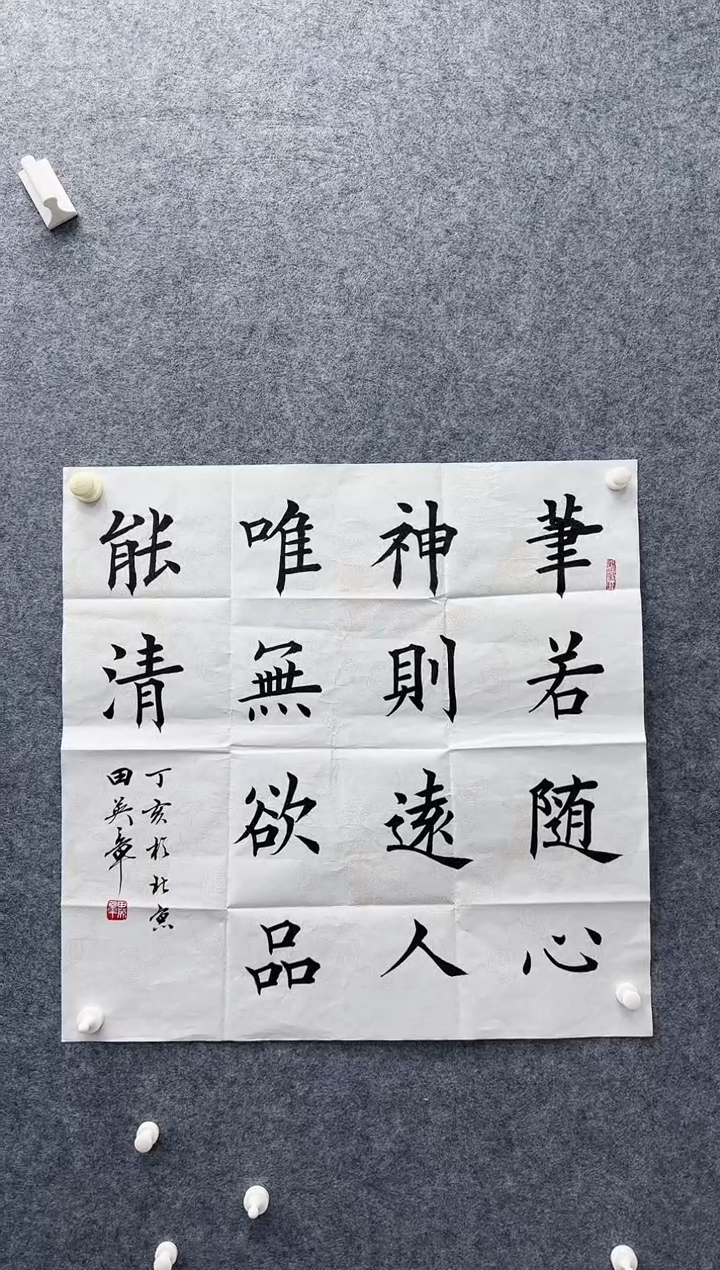 筆若随心
神則遠人
唯無欲品
能清
丁亥於北京
田英章